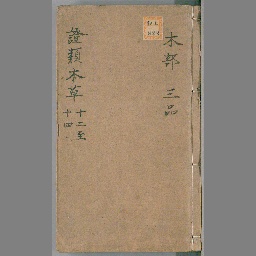 木部 三品
證類本草 十二至
十四